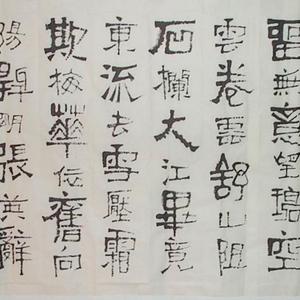 留無意望碧空
雲卷雲舒山阻
石欄大江畢竟
東流去雪壓霜
欺梅華依舊向
陽開明張英辭